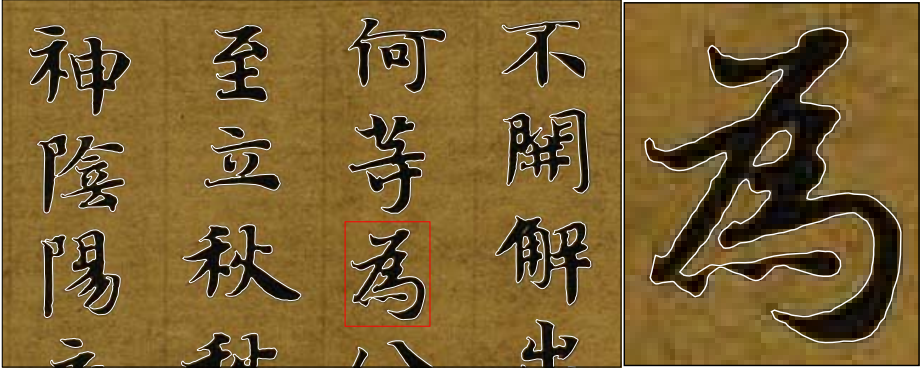 不開解出
何等為八
至立秋秋
神陰陽
為